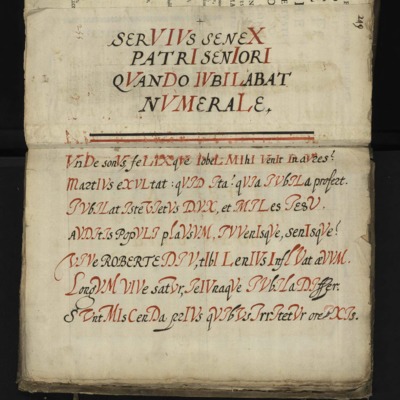 SERVIVS SENEX
PATRI SENIORI
QVANDO IVBILABAT
NVMERALE.
VnDe sonVs feLIXqVe IobeL MIhI VenIt In aVres?
MartIVs eXVLtat: qVID Ita? qVIa IVbILa profert.
IVbILat Iste VetVs DVX, et MILes IesV.
AVDItIs PopVLI pLaVsVM, IVVenIsqVe, senIsqVe?
VIVe ROBERTE DIV, tIbI LenIVs InfLVat æVVM.
LongVM VIVe satVr, IeIVnaqVe IVbILa DIffer.
SVnt MIsCenDa prIVs qVIbVs IrrItetVr